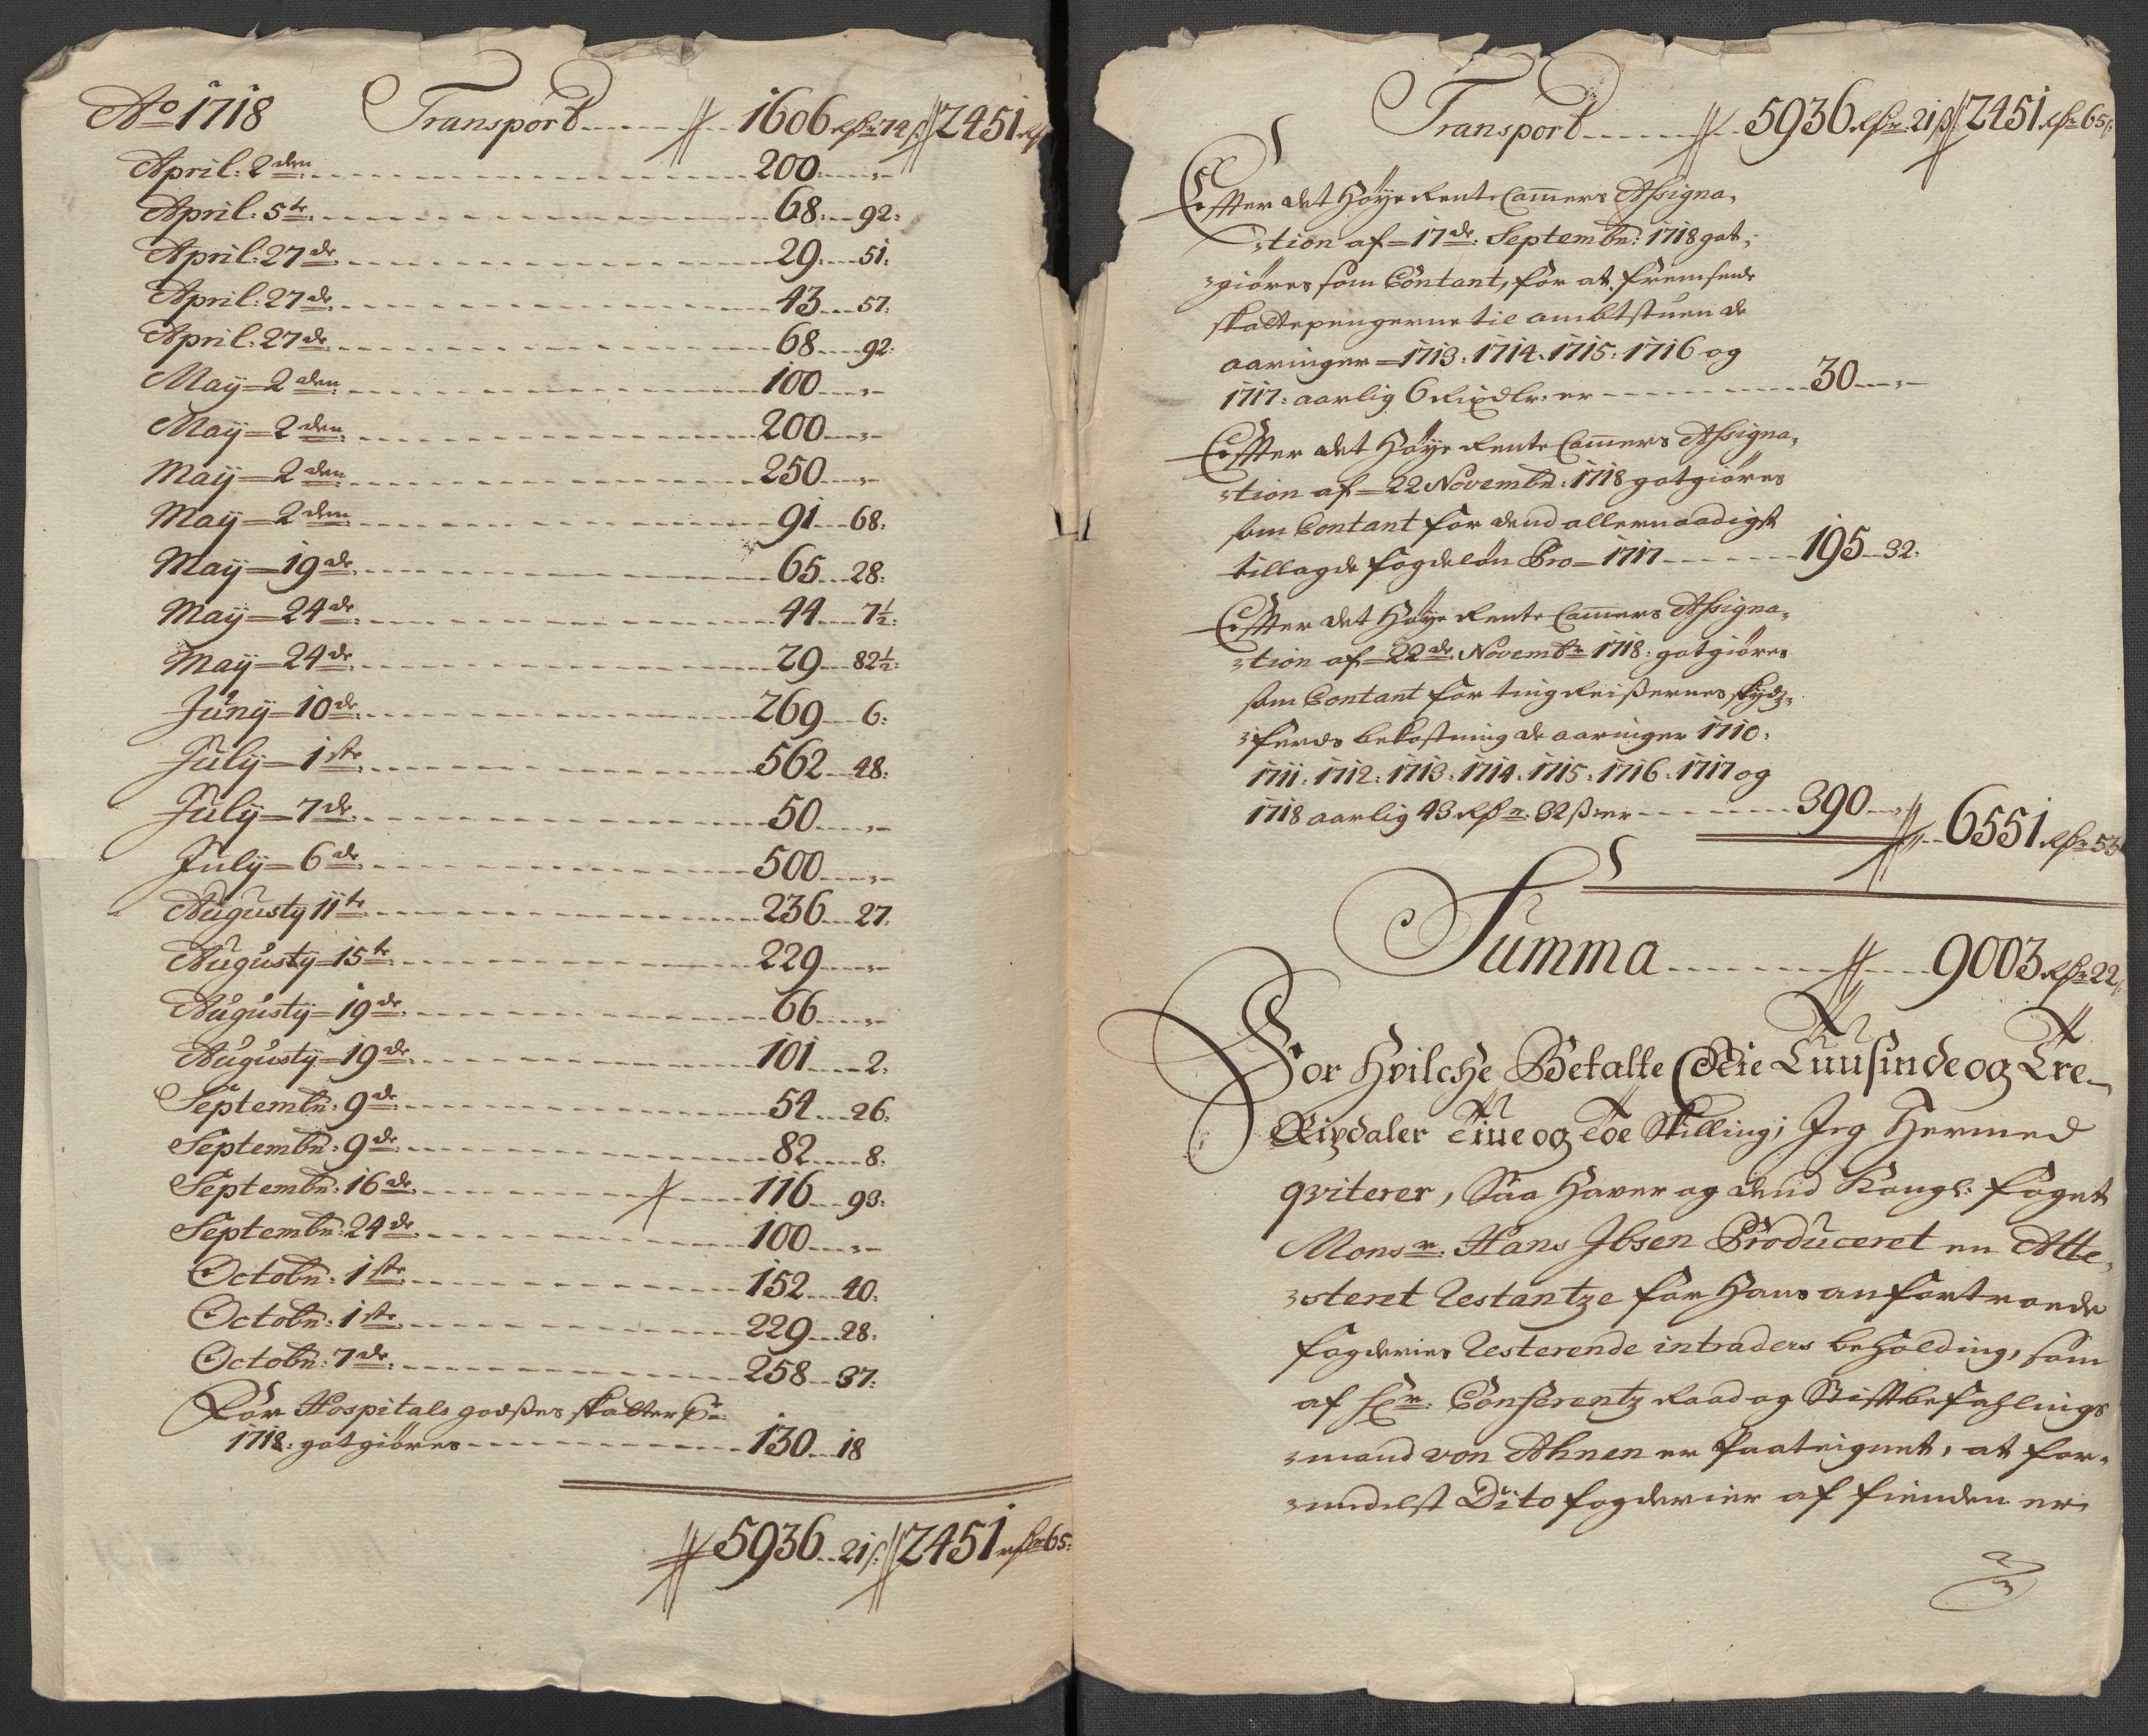 Ao 1718 Transport 1606 Rdr 74 ß 2451 R
April: 2den 200
April: 5te 68 92:
April: 27de 29 51:
April: 27de 43 57:
April: 27de 68 92:
Maij 2den 100
Maij 2den 200
Maij 2den 250
Maij 2den 91 68:
Maij 19de 65 28:
Maij 24de 44 7½:
Maij 24de 29 82½:
Junij 10de 269 6:
Julij 1ste 562 48:
Julij 7de 50
Julij 6de 500
Augustij 11te 236 27:
Augustij 15te 229
Augustij 19de 66
Augustij 19de 101 2:
Septembr: 9de 54 26:
Septembr: 9de 82 8:
Septembr: 16de 116 93:
Septembr: 24de 100
Octobr: 1ste 152 40:
Octobr: 1ste 229 28:
Octobr: 7de 258 37:
For Hospitals godsses skatter pro
1718: gotgiöres 130 18
5936 21 ß 2451 Rdr 65:
Transport 5936 Rdr 21 ß 2451 Rdr 65 ß
Effter det Höye Rente Cammers Assigna-
tion af 17de: Septembr: 1718 got-
giöres som Contant, for at fremsende
skattepengerne til ambtstuen de
aaringer 1713: 1714: 1715: 1716 og
1717: aarlig 6 Rixdlr: er 30
Effter det Höye Rente Cammers Assigna-
tion af 22 Novembr: 1718 gotgiöres
som Contant for dend allernaadigst
tillagde fogdelön Pro 1717 195 32:
Effter det Höye Rente Cammers Assigna-
tion af 22de: Novembr 1718: gotgiöres
som Contant for ting Reissernes skyds-
ferds bekostning de aaringer 1710:
1711: 1712: 1713: 1714: 1715: 1716: 1717 og
1718 aarlig 43 Rdr: 32 ß er 390 6551 Rdr 53
Summa 9003 Rdr 22 ß
For Hvilche Betalte Nie Tuusinde og Tre
Rixdaler Tiue og Toe Skilling; Jeg Hermed
qviterer, Saa Haver og dend Kongl: foget
Monsr: Hans Jbsen Produceret en Atte-
steret Restantze for Hans anfortroede
fogderies Resterende intraders beholding, som
af Hr: Conferentz Raad og Stifftbefahlings
mand von Ahnen er Paateignet, at for-
medelst Dito fogderier af fienden er